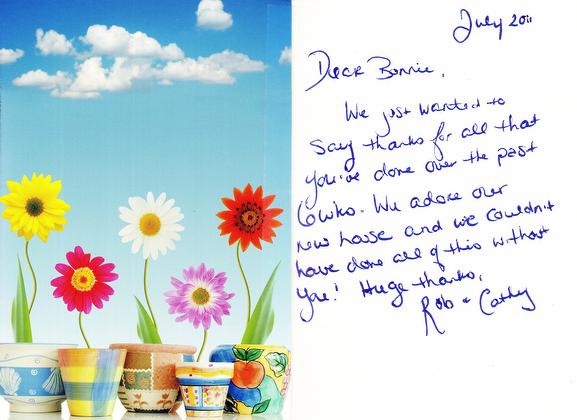 July 2011
Dear Bonnie,
We just wanted to
say thanks for all that
you've done over the past
6wks. We adore our
new house and we couldn't
have done all of this without
you! Huge thanks,
Rob & Cathy